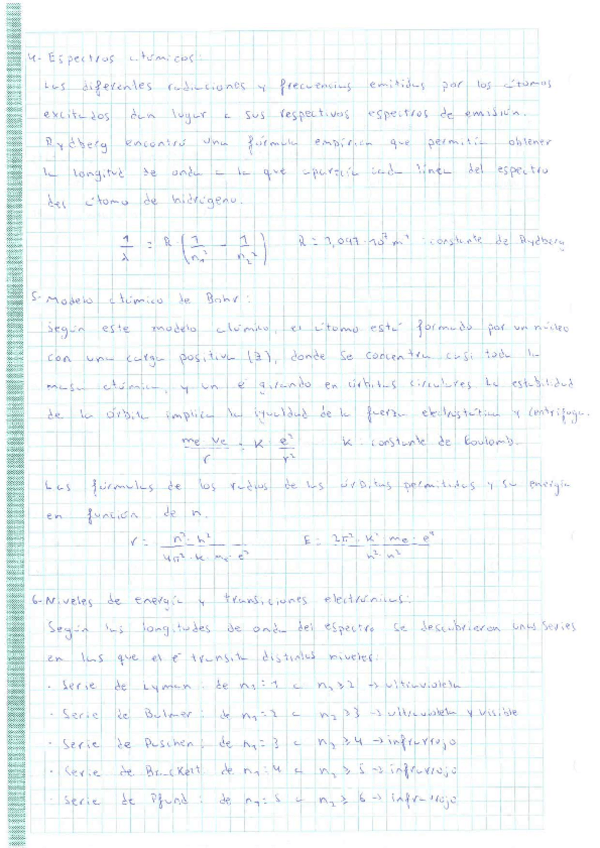 4- Espectros atómicos:
Las diferentes radiaciones y frecuencias emitidas por los átomos
excitados dan lugar a sus respectivos espectros de emisión.
Rydberg encontró una fórmula empírica que permitía obtener
la longitud de onda a la que aparecía cada línea del espectro
del átomo de hidrógeno.
1/λ = R (1/n₁² - 1/n₂²) R = 1,097·10⁷ m⁻¹: constante de Rydberg
5- Modelo atómico de Bohr:
Según este modelo atómico, el átomo está formado por un núcleo
con una carga positiva (Z), donde se concentra casi toda la
masa atómica, y un e⁻ girando en órbitas circulares. La estabilidad
de la órbita implica la igualdad de la fuerza electrostática y centrífuga.
me ve / r = K · e² / r² K: constante de Koulomb.
Las fórmulas de los radios de las órbitas permitidas y su energía
en función de n.
r = n²·h² / 4π²·K·me·e² E = 2π²·K²·me·e² / n²h²
6- Niveles de energía y transiciones electrónicas:
Según las longitudes de onda del espectro se descubrieron unas series
en las que el e⁻ transita distintos niveles:
· Serie de Lyman: de n₁=1 a n₂≥2 → ultravioleta
· Serie de Balmer: de n₁=2 a n₂≥3 → ultravioleta y visible
· Serie de Paschen: de n₁=3 a n₂≥4 → infrarrojo
· Serie de Brackett: de n₁=4 a n₂≥5 → infrarrojo
· Serie de Pfund: de n₁=5 a n₂≥6 → infrarrojo